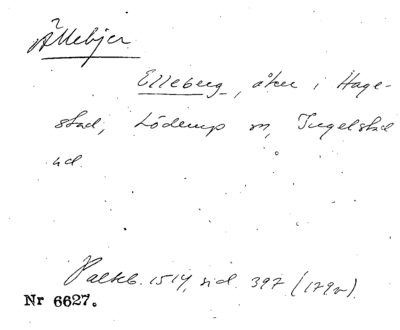 Ällebjer
Elleberg, åker i Hage-
stad, Löderup sn, Ingelstad
hd.
Palkb. 1514, sid. 397 (179v).
Nr 6627.